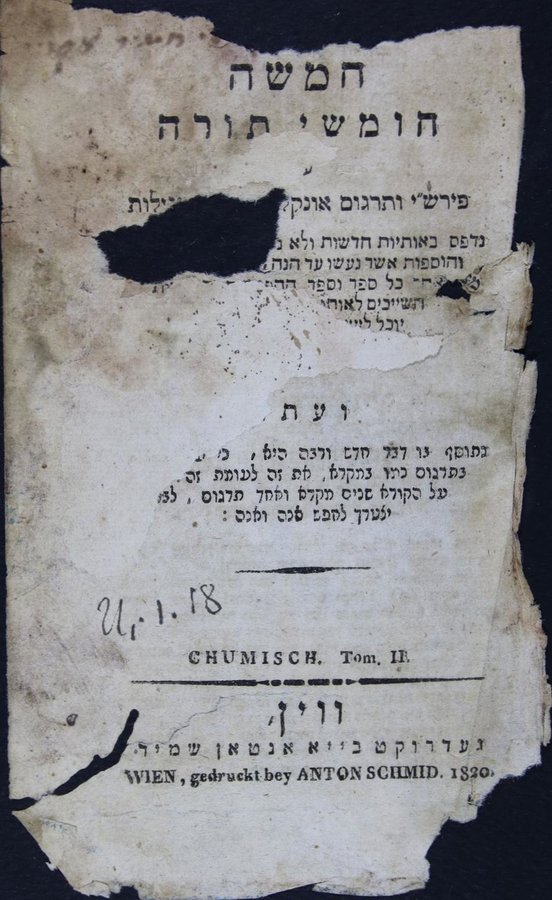 חמשה
חומשי תורה
פירש״י ותרגום
נדפס באותיות חדשות ולא
והוספות אשר נעשו עד הנה
כל ספר וספר
השייכים
יוכל
ועתה
נתוסף בו דבר חדש ורבה היא,
בתרגום כמו במקרא, את זה לעומת זה
על הקורא שנים מקרא ואחד תרגום,
יצטרך לחפש אנה ואנה:
U, 1. 18
CHUMISCH. Tom. II.
ווין,
געדרוקט בייא אנטאן שמיד.
WIEN, gedruckt bey ANTON SCHMID. 1820.